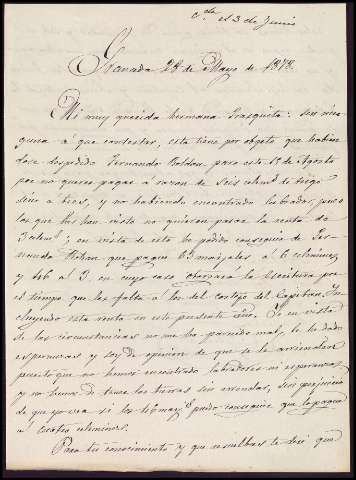 c.da el 3 de Junio
Granada 28 de Mayo de 1878.
Mi muy querida hermana Frasquita: sin nin-
guna á que contestar, esta tiene por objeto que habien
dose despedido Fernando Roldan, para este 15 de Agosto
por no querer pagar á razon de seis celem.s de trigo
sino a tres, y no habiendo encontrado labrador, pues
los que las han visto no quieren pasar la renta de
3 celem.s; en vista de esto he podido conseguir de Fer-
nando que pague 63 marjales á 6 celemines
y 46 á 3. en cuyo caso otorgará la escritura por
el tiempo que les falta á los del cortijo del Capitan. In
cluyendo esta renta en este presente año. Yo en vista
de las circunstancias no me ha parecido mal, le he dado
esperanzas y soy de opinion de que se le arrienden
puesto que no hemos encontrado labradores ni esperanzas
y no hemos de tener las tierras sin arrendar, sin perjuicio
de que yo vea si los 46 marj.s puedo conseguir que lo pague
á cuatro celemines.
Para tu conocimiento y que resuelvas te diré que